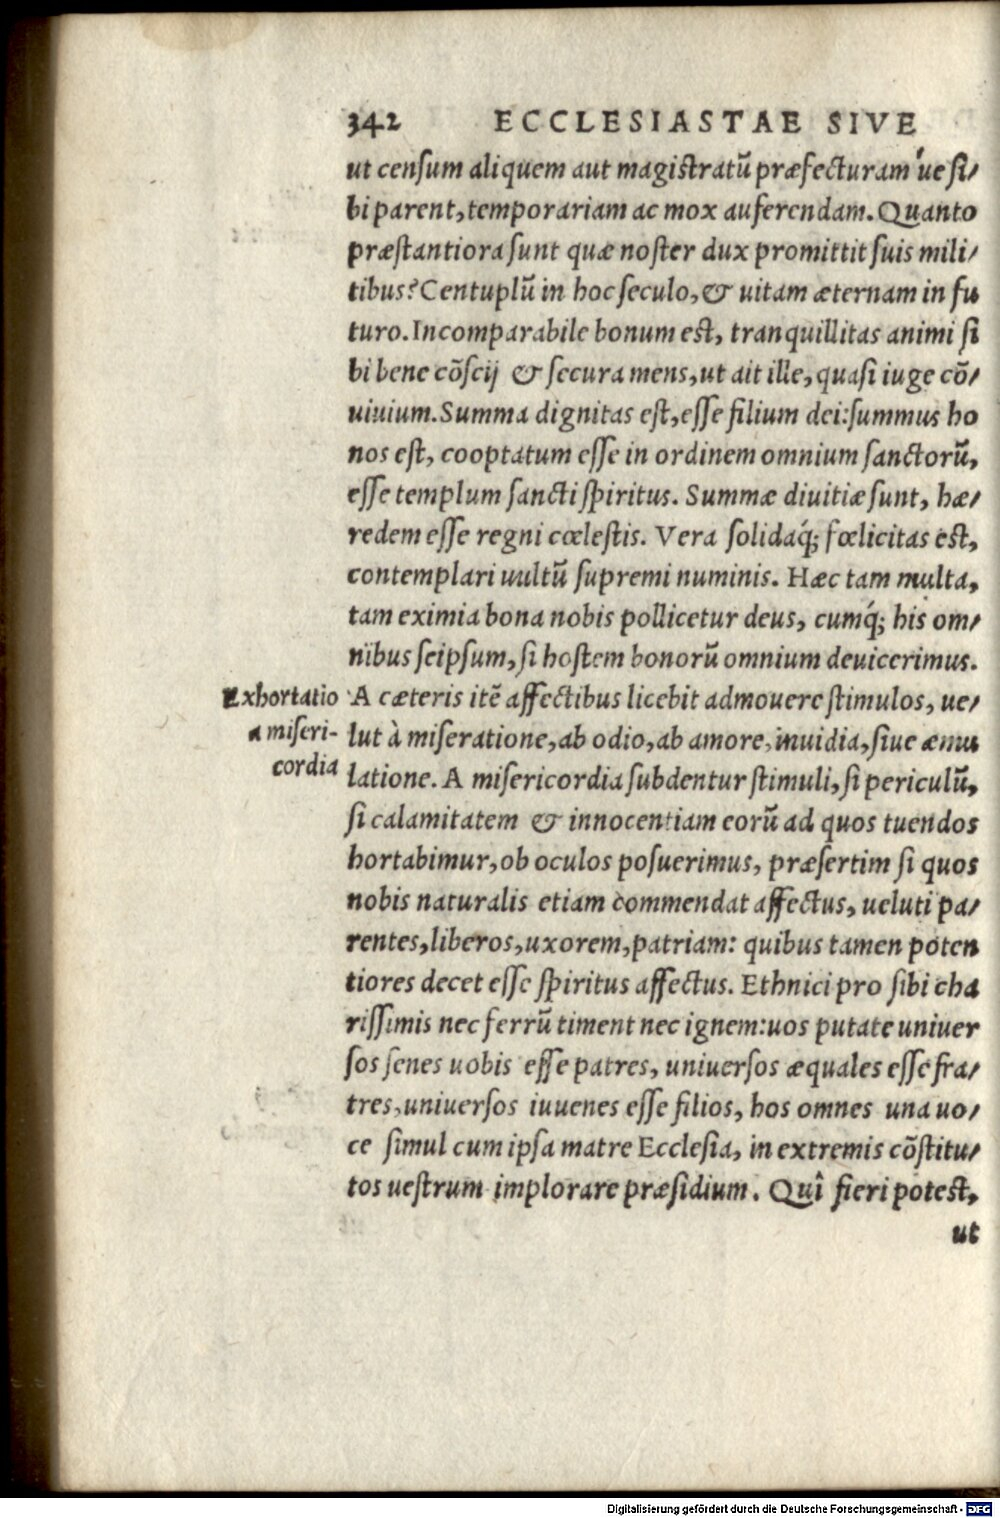 342 ECCLESIASTAE SIVE
ut censum aliquem aut magistratũ præfecturam ́ue si/
bi parent, temporariam ac mox auferendam. Quanto
præstantiora sunt quæ noster dux promittit suis mili/
tibus? Centuplũ in hoc seculo, & uitam æternam in fu
turo. Incomparabile bonum est, tranquillitas animi si
bi bene cõscij & secura mens, ut ait ille, quasi iuge cõ/
uiuium. Summa dignitas est, esse filium dei: summus ho
nos est, cooptatum esse in ordinem omnium sanctorũ,
esse templum sancti spiritus. Summæ diuitiæ sunt, hæ/
redem esse regni cœlestis. Vera solidaq́; fœlicitas est,
contemplari uultũ supremi numinis. Hæc tam multa,
tam eximia bona nobis pollicetur deus, cumq́; his om/
nibus seipsum, si hostem bonorũ omnium deuicerimus.
Exhortatio A cæteris itẽ affectibus licebit admouere stimulos, ue/
a miseri- lut à miseratione, ab odio, ab amore, inuidia, siue æmu
cordia latione. A misericordia subdentur stimuli, si periculũ,
si calamitatem & innocentiam eorũ ad quos tuendos
hortabimur, ob oculos posuerimus, præsertim si quos
nobis naturalis etiam commendat affectus, ueluti pa/
rentes, liberos, uxorem, patriam: quibus tamen poten
tiores decet esse spiritus affectus. Ethnici pro sibi cha
rissimis nec ferrũ timent nec ignem: uos putate uniuer
sos senes uobis esse patres, uniuersos æquales esse fra/
tres, uniuersos iuuenes esse filios, hos omnes una uo/
ce simul cum ipsa matre Ecclesia, in extremis cõstitu/
tos uestrum implorare præsidium. Quî fieri potest,
ut
Digitalisierung gefördert durch die Deutsche Forschungsgemeinschaft - DFG